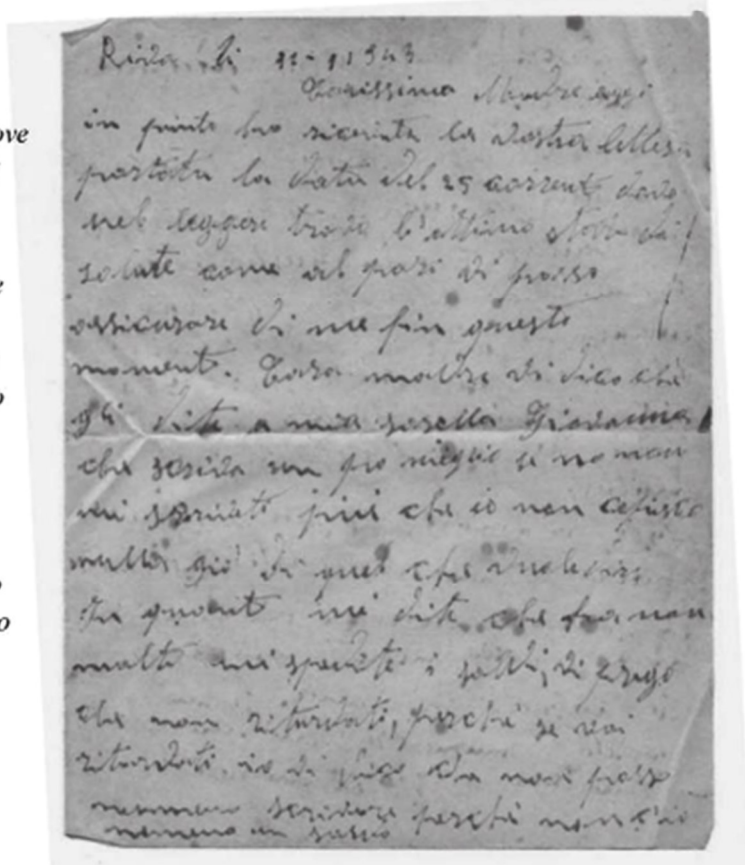 ove
e
o
o
o
Riva li 11-1943
Carissima Madre oggi
in punto ho ricevuta la vostra lettera
portata la data del 25 corrente dove
nel leggere trovo l'ottimo stato di
salute come al pari vi posso
assicurare di me fin questo
momento. Cara madre vi dico che
gli dite a mia sorella Giovanna
che scriva un po meglio si no non
mi scriviti più che io non capisco
nulla di quel che
In quanto mi dite che fra non
molto mi spedite i soldi, vi prego
che non ritardati, perché se voi
ritardati io vi dico che non posso
nemmeno scrivere perché non c'è
nemeno un